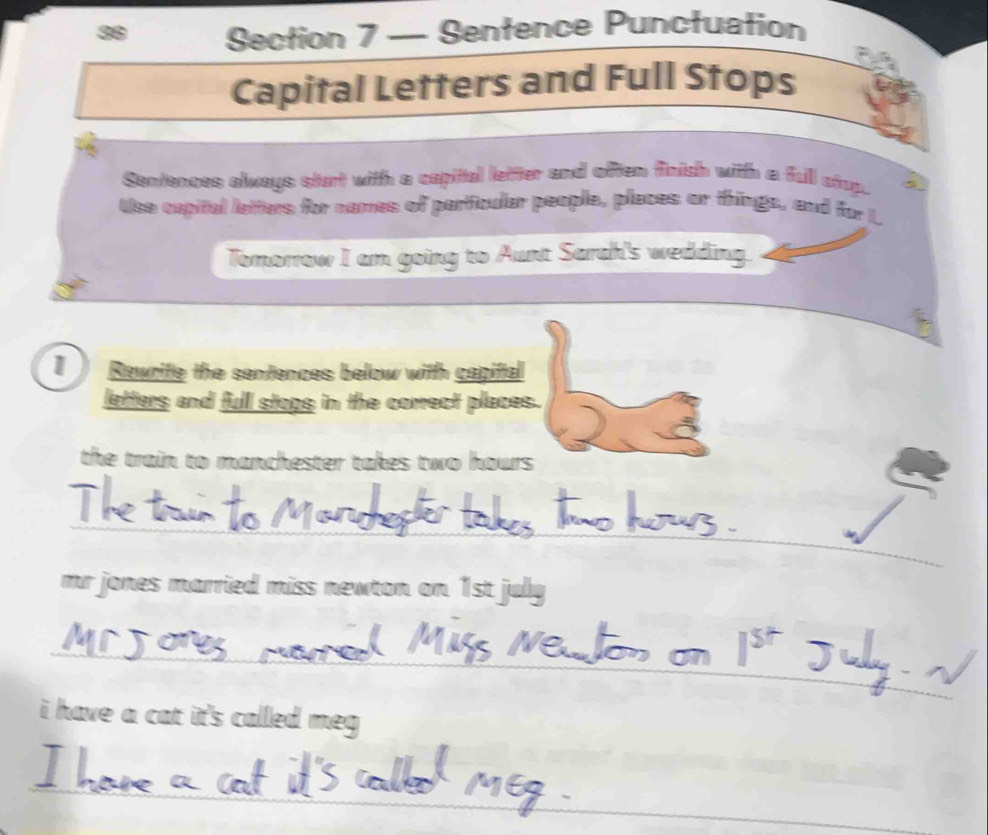 36
Section 7 — Sentence Punctuation
Capital Letters and Full Stops
Sentences always start with a capital letter and often finish with a full stop.
Use capital letters for names of particular people, places or things, and for I.
Tomorrow I am going to Aunt Sarah's wedding.
1 Rewrite the sentences below with capital
letters and full stops in the correct places.
the train to manchester takes two hours
The train to Manchester takes two hours.
mr jones married miss newton on 1st july
Mr Jones married Miss Newton on 1st July.
i have a cat it's called meg
I have a cat it's called Meg.